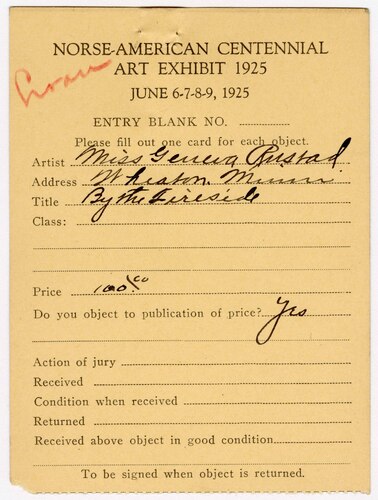 NORSE-AMERICAN CENTENNIAL
ART EXHIBIT 1925
JUNE 6-7-8-9, 1925
ENTRY BLANK NO.
Please fill out one card for each object.
Artist Miss Geneva Rustad
Address Wheaton, Minn.
Title By the Fireside
Class:
Price 100.00
Do you object to publication of price? Yes
Action of jury
Received
Condition when received
Returned
Received above object in good condition
To be signed when object is returned.